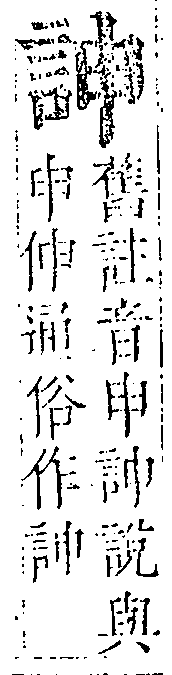 訷
舊註音申訷說與
申伸通俗作訷